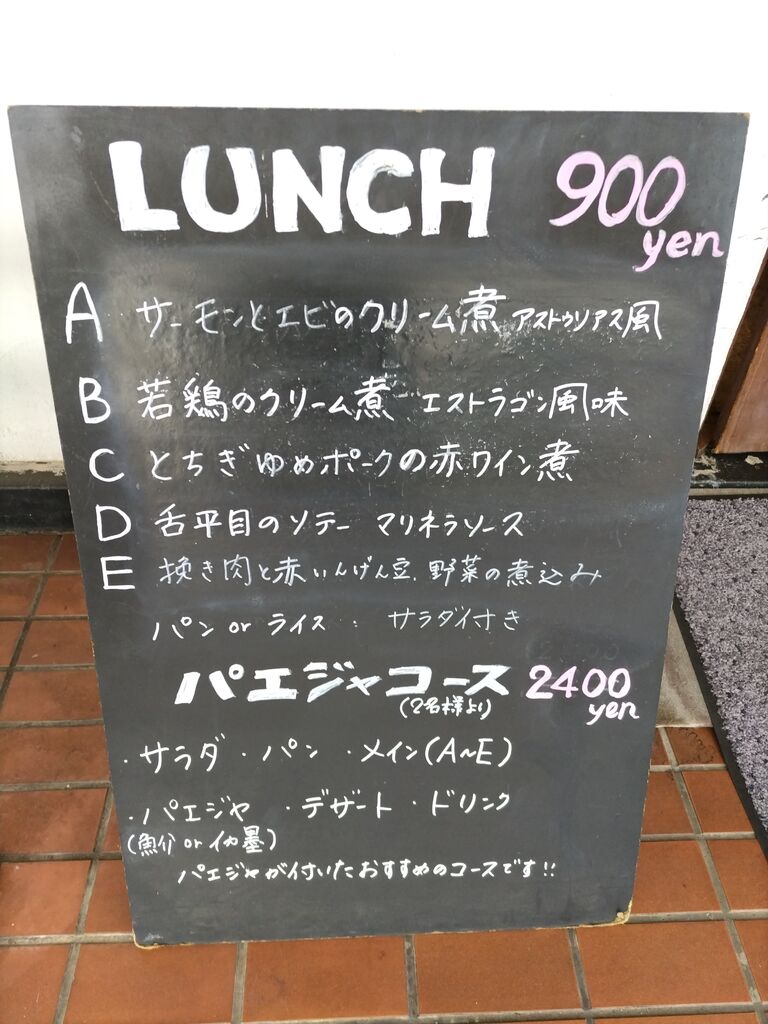 LUNCH 900 yen
A サーモンとエビのクリーム煮 アストゥリアス風
B 若鶏のクリーム煮 エストラゴン風味
C とちぎゆめポークの赤ワイン煮
D 舌平目のソテー マリネラソース
E 挽き肉と赤いんげん豆、野菜の煮込み
パン or ライス ・ サラダ付き
パエジャコース 2400 yen
(2名様より)
・サラダ ・パン ・メイン(A~E)
・パエジャ ・デザート ・ドリンク
(魚介 or イカ墨)
パエジャが付いたおすすめのコースです!!